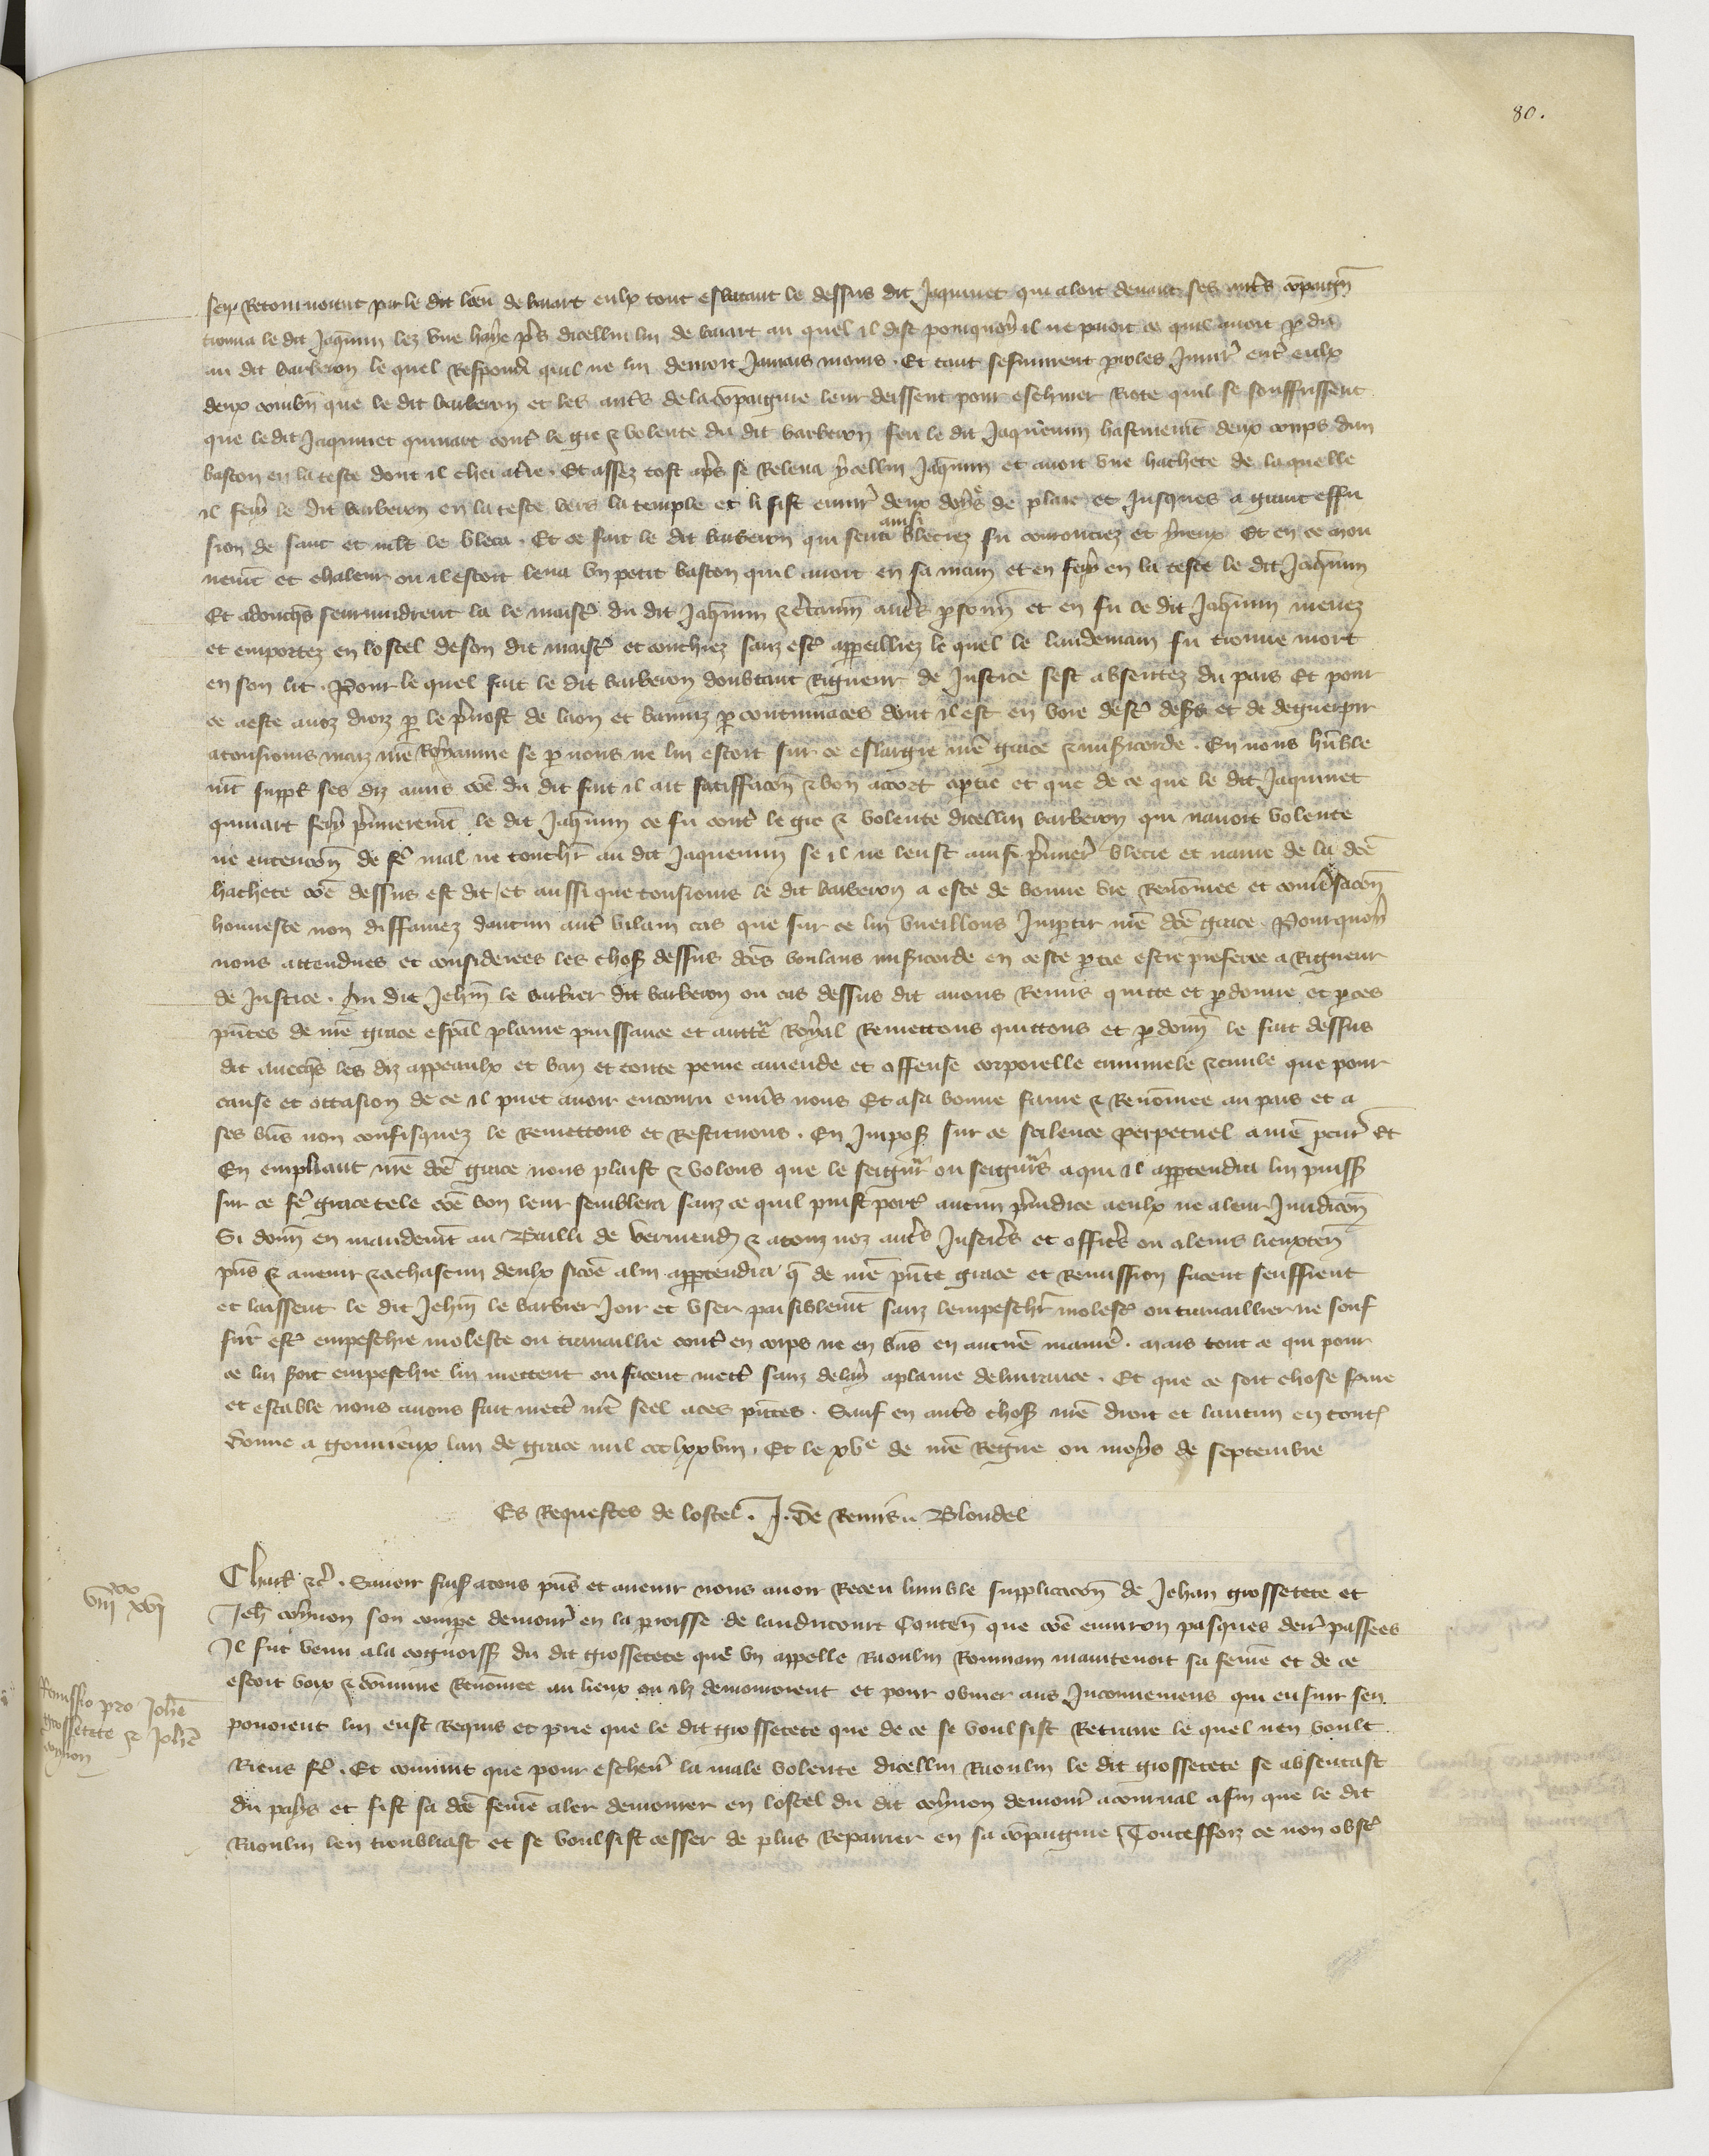 80.
sen Retournoient par le dit lieu de baiart eulx tout esbatant le dessus dit Jaquinet qui aloit deuant ses autrs compaignons
trouua le dit Jaqmin lez vne haye prs dicellui lieu de baiart au quel il dist pourquoy il ne paioit ce quil auoit pdu
au dit barberon le quel Respondi quil ne lui deuoit Jamais moins. Et tant sesmurent paroles Iniur entr eulx
deux combn que le dit barberon et les autrs de la compaignie leur deissent pour escheuer Riote quil se souffrissent
que le dit Jaquinet quinart contr le gre & volente du dit barberon feri le dit Jaquemin hastiuemt deux coups dun
baston en la teste dont il chei a tre. Et assez tost aprs se Releua ycellui Jaqmin et auoit vne hachete de la quelle
il fery le dit barberon en la teste vers la temple et li fist enuir deux doys de plaie et Jusques a grant effu
sion de sanc et mlt le bleca. Et ce fait le dit barberon qui senti ainsi bleciez fu courouciez et yreux Et en ce mou
uemt et chaleur ou il estoit leua vn petit baston quil auoit en sa main et en fery en la teste le dit Jaqmin
Et adoncqs seuruindrent la le maistr du dit Jaqmin & crtainns autrs psonns et en fu le dit Jaqmin menez
et emportez en lostel de son dit maistr et couchiez sanz estr appeilliez le quel le landemain fu trouue mort
en son lit. Pour le quel fait le dit barberon doubtant Rigueur de Justice sest absentez du pais Et pour
ce a este auoz droiz p le preuost de laon et banniz p contumaces dont il est en voie destr desers et de deguerpir
a tousiours maiz nre Royaume se p nous ne lui estoit sur ce eslargie nre grace & misicorde. En nous huble
mt suppl ses diz amis coe du dit fait il ait satiffacon & bon accort a ptie et que de ce que le dit Jaquinet
quinart fery primeremt le dit Jaqmin ce fu contr le gre & volente dicellui barberon qui nauoit volente
ne entencon de fr mal ne touchr au dit Jaquemin se il ne leust ainsi primer blecie et naure de la dce
hachete coe dessus est dit et aussi que tousiours le dit barberon a este de bonne vie Renommee et conuersacon
honneste non diffamez daucun autr vilain cas que sur ce lui vueillons Impartir nre dce grace. Pourquoy
nous attendues et considerees les chos dessus dces voulans misicorde en ceste ptie estre preferee a Rigueur
de Justice. Au dit Jehn le barbier dit barberon ou cas dessus dit auons Remis quitte et pdonne et p ces
pntes de nre grace espal plaine puissance et auttr Royal Remettons quittons et pdonn le fait dessus
dit auecqs les diz appeaulx et ban et toute peine amende et offense corporelle criminele & ciuile que pour
cause et occasion de ce il puet auoir encouru enuers nous Et a sa bonne fame & Renommee au pais et a
ses bns non confisquez le Remettons et Restituons. En Impos sur ce scilence perpetuel a nre pcur Et
En empliant nre dce grace nous plaist & volons que le seignr ou seignrs a qui il appartendra lui puiss
sur ce fr grace tele coe bon leur semblera sanz ce quil puist portr aucun preiudice a eulx ne a leur Juridicon
Si donn en mandemt au Bailli de Vermend & a touz noz autrs Justicrs et officrs ou a leurs lieuxten
pns & auenir & a chascun deulx sicoe a lui appartendra q de nre pnte grace et Remission facent seuffrent
et laissent le dit Jehn le barbier Joir et vser paisiblemt sanz lempeschr molestr ou trauaillier ne souf
frir estr empeschie moleste ou trauaillie contr en corps ne en bns en aucune manier. mais tout ce qui pour
ce lui soit empeschie lui mettent ou facent mettr sanz delay a plaine deliurance. Et que ce soit chose ferme
et estable nous auons fait mettr nre seel a ces pntes. Sauf en autrs chos nre droit et lautrui en toutes
donne a gouuieux lan de grace mil ccc lxxviii. Et le xve de nre Regne ou moys de septembre
Es Requestes de lostel. J. de Remis. Blondel
viiixx xvi
Charl &c. Sauoir fais a tous pns et auenir nous auoir Receu lumble supplicacon de Jehan grossetete et
Jeh coynon son compe demour en la parroisse de landricourt Conten que coe enuiron pasques derr passees
Il fut venu a la cognoiss du dit grossetete que vn appelle Raoulin Roumain maintenoit sa feme et de ce
estoit voix & commune Renommee au lieux ou ilz demouroient et pour obuier aus Inconueniens qui ensuir sen
pouoient lui eust Requis et prie que le dit grossetete que de ce se voulsist Retraire le quel nen voult
Riens fr. Et conuint que pour escheur la male volente dicellui Raoulin le dit grossetete se absentast
du pays et fist sa dce feme aler demourer en lostel du dit coynon demour a courual afin que le dit
Raoulin len troubliast et se voulsist cesser de plus Repairier en sa compaignie Toutesfoiz ce non obstr
Remissio pro Johe
grossetete & Johe
coynon